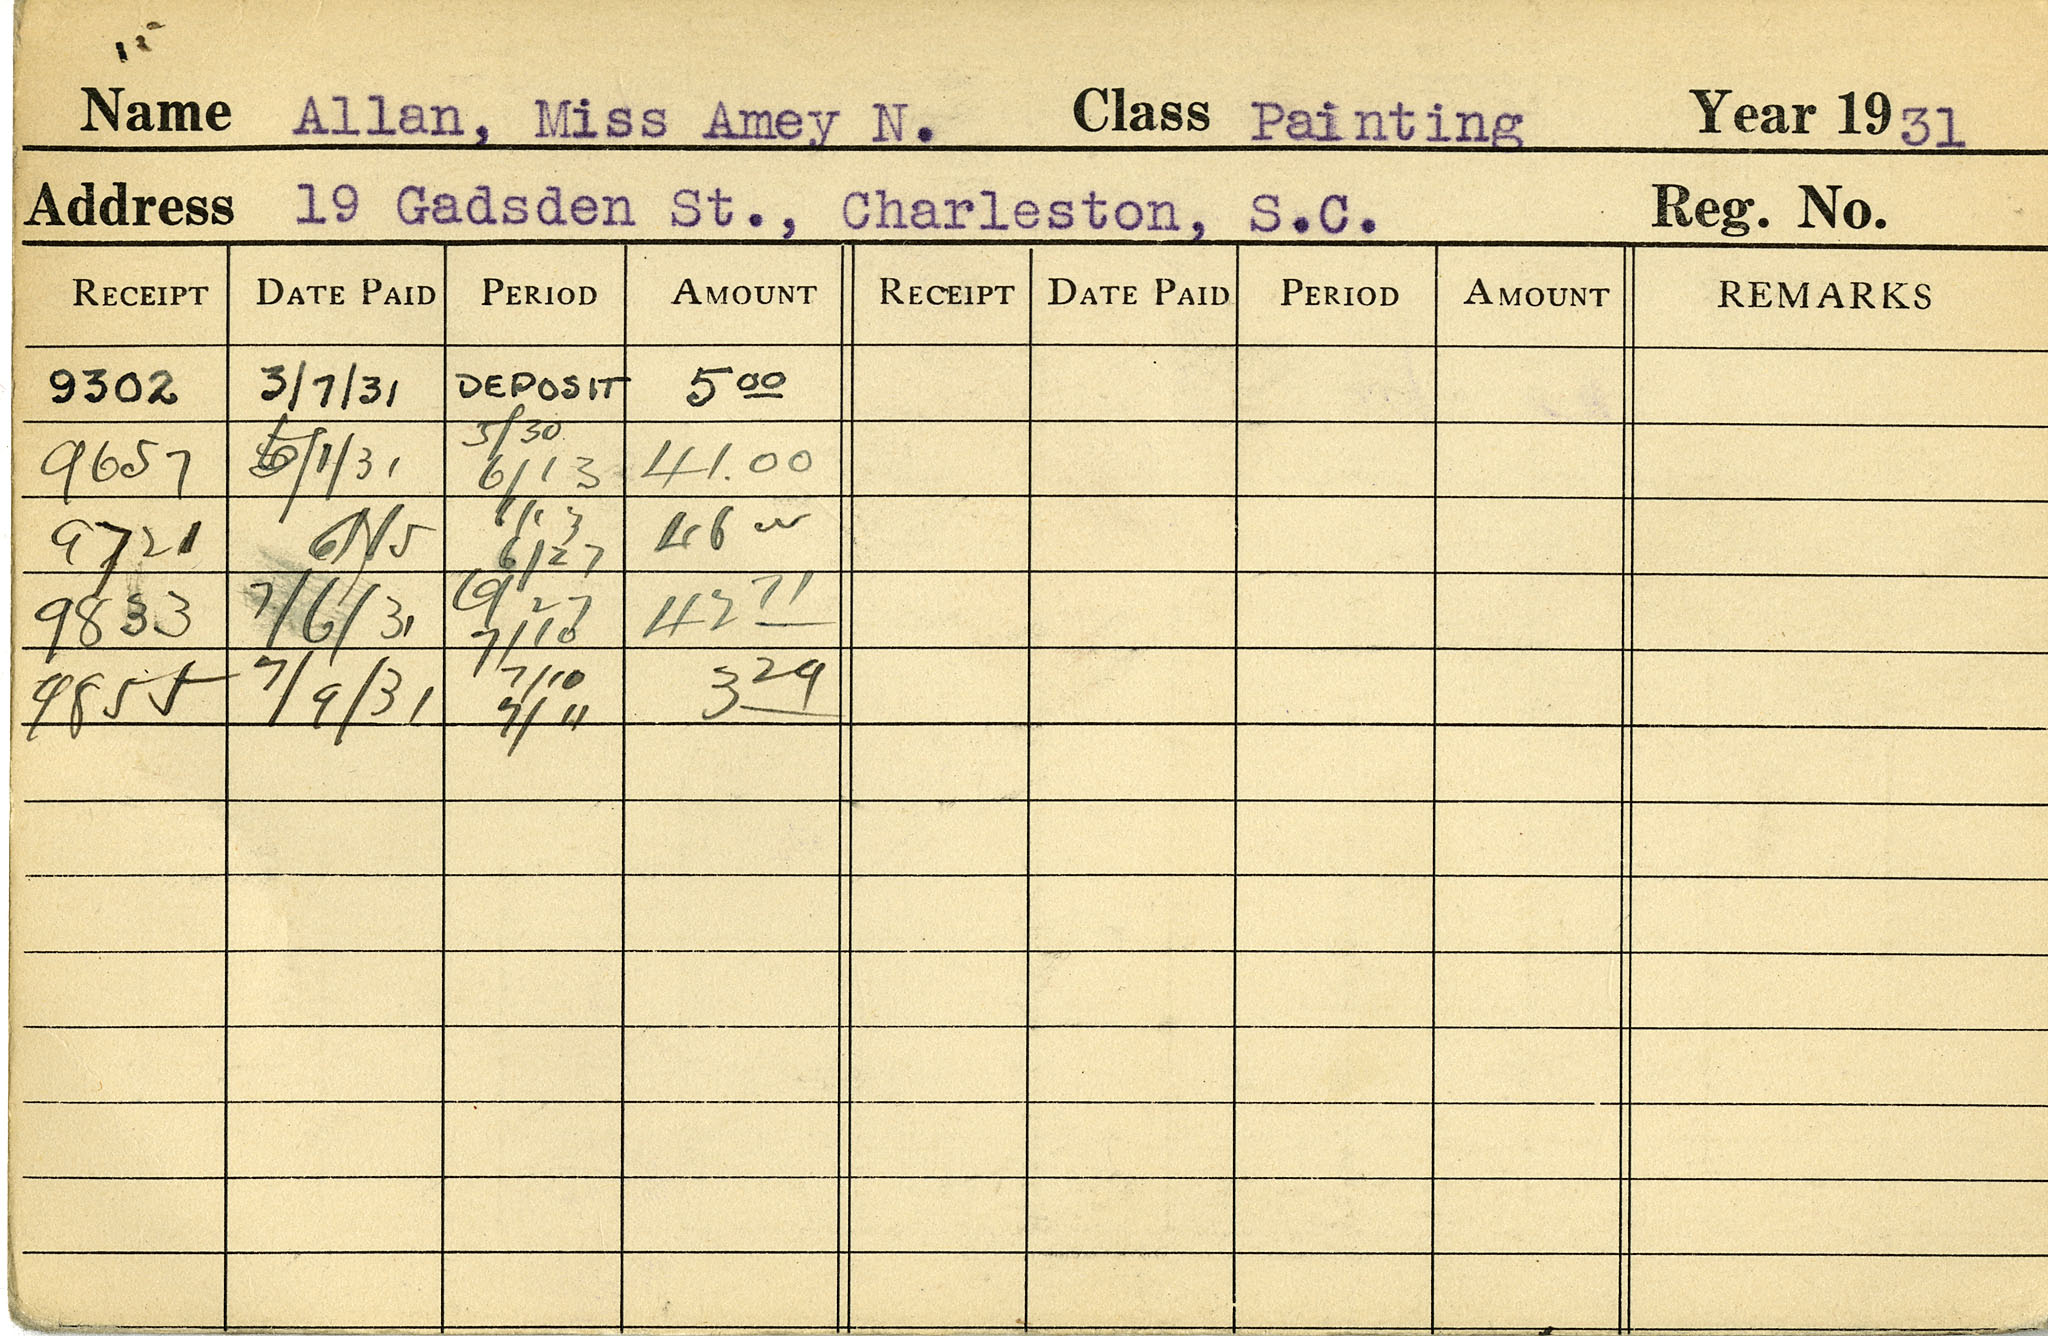 Name Allan, Miss Amey N. Class Painting Year 1931
Address 19 Gadsden St., Charleston, S.C. Reg. No.
RECEIPT DATE PAID PERIOD AMOUNT RECEIPT DATE PAID PERIOD AMOUNT REMARKS
9302 3/7/31 DEPOSIT 5 00
5/30
9657 6/1/31 6/13 41.00
6/13
9721 6/15 6/27 46 00
6/27
9833 7/6/31 7/10 42 71
7/10
9855 7/9/31 7/11 3 29